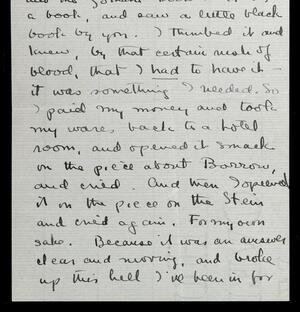 a book, and saw a little black
book by you. I thumbed it and
knew, by that certain rush of
blood, that I had to have it —
it was something I needed. So
I paid my money and took
my wares back to a hotel
room, and opened it smack
on the piece about Barrow,
and cried. And then I opened
it on the piece on the Stein
and cried again. For my own
sake. Because it was an answer
clear and moving, and broke
up this hell I've been in for